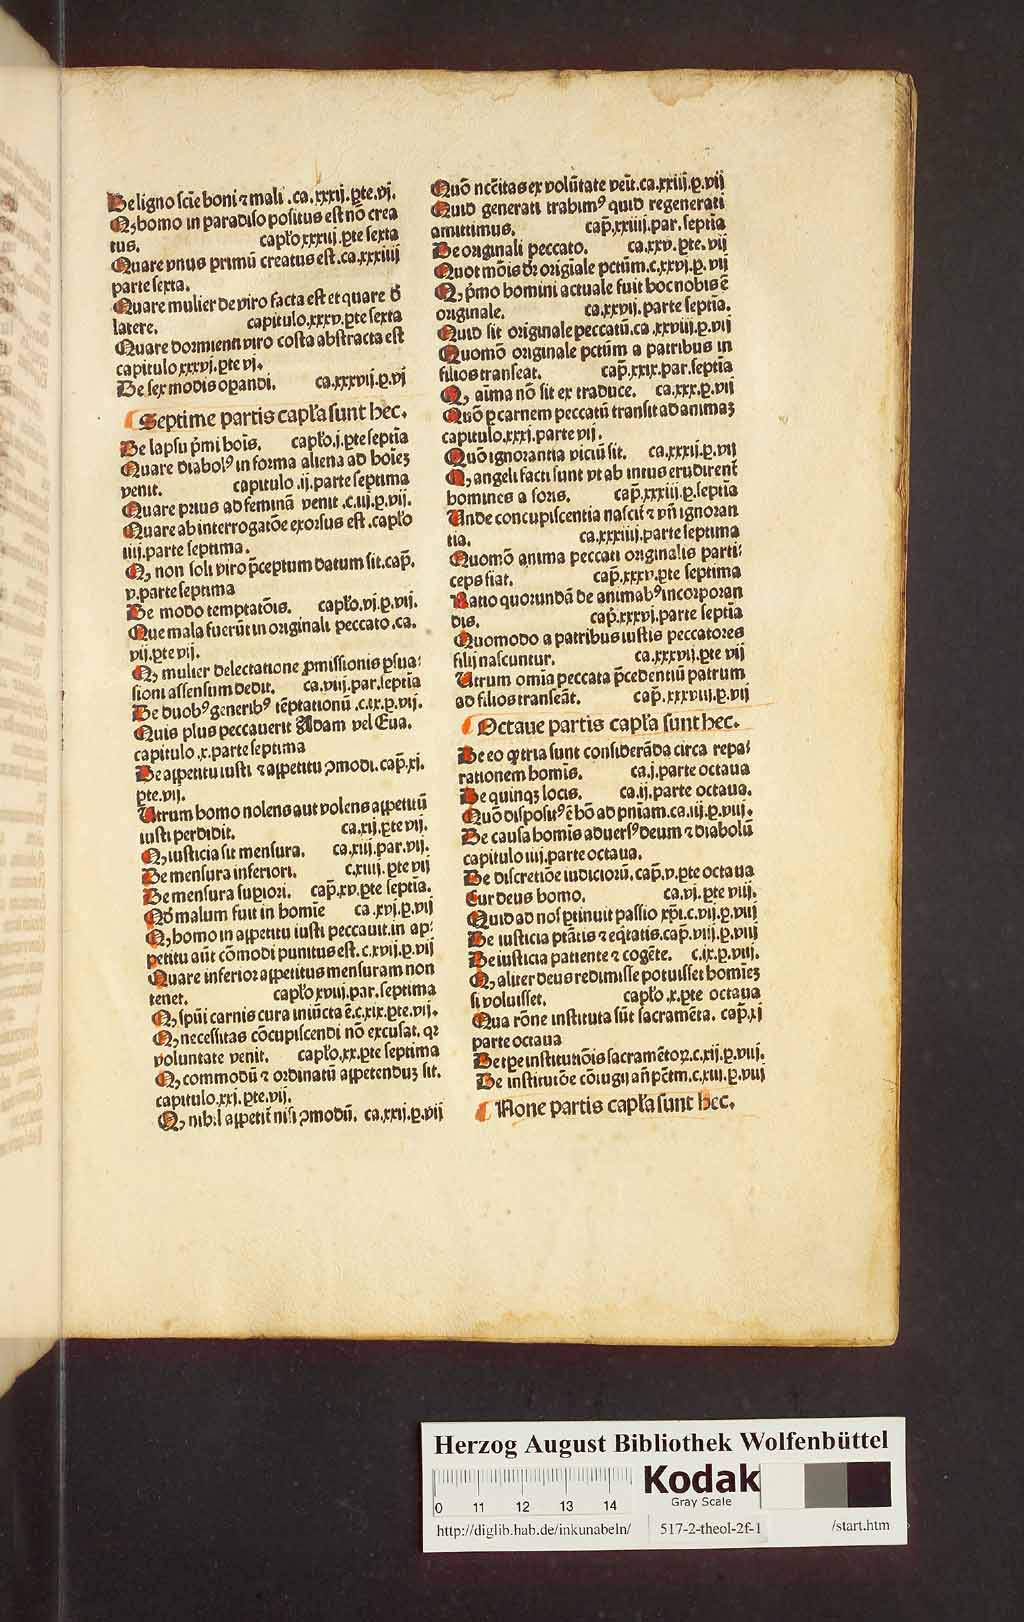 De ligno scie boni ⁊ mali .ca.xxxij.ꝑte.vj.
Q, homo in paradiso positus est nō crea
tus. capło xxxiij.ꝑte sexta
Quare vnus primū creatus est.ca.xxxiiij
parte sexta.
Quare mulier de viro facta est et quare đ
latere. capitulo.xxxv.ꝑte sexta
Quare dormienti viro costa abstracta est
capitulo xxxvj.ꝑte vj.
De sex modis oꝑandi. ca.xxxvij.ꝑ.vj
Septime partis capła sunt hec.
De lapsu p̄mi hoīs. capło.j.ꝑte septīa
Quare diabolꝰ in forma aliena ad hoīeꝫ
venit. capitulo .ij.parte septima
Quare prius ad feminā venit .c.iij.ꝑ.vij.
Quare ab interrogatōe exorsus est .capło
iiij.parte septima.
Q, non soli viro p̄ceptum datum sit.cap̄.
v.parte septima
De modo temptatōis. capło.vj.ꝑ.vij.
Que mala fuerūt in originali peccato .ca.
vij.ꝑte vij.
Q, mulier delectatione ꝓmissionis ꝑsua⸗
sioni assensum dedit. ca.viij.par.septīa
De duobꝰ generibꝰ tēptationū .c.ix.ꝑ.vij.
Quis plus peccauerit Adam vel Eua.
capitulo .x.parte septima
De appetitu iusti ⁊ appetitu ꝯmodi.cap̄.xj.
ꝑte.vij.
Utrum homo nolens aut volens appetitū
iusti perdidit. ca.xij.ꝑte vij.
Q, iusticia sit mensura. ca.xiij.par.vij.
De mensura inferiori. c.xiiij.ꝑte vij
De mensura suꝑiori. cap̄.xv.ꝑte septīa.
Qđ malum fuit in homīe ca .xvj.ꝑ.vij
Q, homo in appetitu iusti peccauit.in ap⸗
petitu aūt cōmodi punitus est.c.xvij.ꝑ.vij
Quare inferior appetitus mensuram non
tenet. capło xviij.par.septima
Q, spūi carnis cura iniūcta ē.c.xix.ꝑte.vij.
Q, necessitas cōcupiscendi nō excusat. qꝛ
voluntate venit. capło.xx.ꝑte septima
Q, commodū ⁊ ordinatū appetenduꝫ sit.
capitulo.xxj.ꝑte.vij.
Q, nihil appetit̄ nisi ꝯmodū. ca.xxij.ꝑ.vij
Quō nc̄citas ex volūtate veīt.ca.xxiij.ꝑ.vij
Quid generati trahimꝰ quid regenerati
amittimus. cap̄.xxiiij.par.septīa
De originali peccato. ca.xxv.ꝑte.vij
Quot mōis dr̄ origīale pctūm.c.xxvj.ꝑ.vij
Q, p̄mo homini actuale fuit hoc nobis ē
originale. ca.xxvij.parte septīa.
Quid sit originale peccatū.ca.xxviij.ꝑ.vij
Quomō originale pctūm a patribus in
filios transeat. cap̄.xxix.par.septīa
Q, aīma nō sit ex traduce. ca.xxx.ꝑ.vij
Quō ꝑ carnem peccatū transit ad animaꝫ
capitulo.xxxj.parte vij.
Quō ignorantia viciū sit. ca.xxxij.ꝑ.vij
Q, angeli facti sunt vt ab intus erudirent̄
homines a foris. cap̄.xxxiij.ꝑ.septīa
Unde concupiscentia nascit̄ ⁊ vn̄ ignoran
tia. ca.xxxiiij.parte septima
Quomō anima peccati originalis parti⸗
ceps fiat. cap̄.xxxv.ꝑte septima
Ratio quorundā de animabꝰ incorporan
dis. cap̄.xxxvj.parte septīa
Quomodo a patribus iustis peccatores
filij nascuntur. ca.xxxvij.ꝑte vij
Utrum omīa peccata p̄cedentiū patrum
ad filios transeāt. cap̄.xxxviij.ꝑ.vij
Octaue partis capła sunt hec.
De eo ꝙ tria sunt considerāda circa repa⸗
rationem homīs. ca.j.parte octaua
De quinqꝫ locis. ca.ij.parte octaua.
Quō disposit̉ ē hō ad pn̄iam.ca.iij.ꝑ.viij.
De causa homīs aduersꝰ deum ⁊ diabolū
capitulo iiij.parte octaua.
De discretiōe iudiciorū.cap̄.v.ꝑte octaua
Cur deus homo. ca.vj.ꝑte viij.
Quid ad nos ꝑtinuit passio xp̄i.c.vij.ꝑ.viij
De iusticia ptātis ⁊ eq̄tatis.cap̄.viij.ꝑ.viij
De iusticia patiente ⁊ cogēte. c.ix.ꝑ.viij.
Q, aliter deus redimisse potuisset homīeꝫ
si voluisset. capło .x.ꝑte octaua
Qua rōne instituta sūt sacramēta. cap̄.xj
parte octaua
De tꝑe institutiōis sacramētoꝝ.c.xij.ꝑ.viij.
De institutōe cōiugij añ pc̄tm.c.xiij.ꝑ.viij
None partis capła sunt hec.
Herzog August Bibliothek Wolfenbüttel
Kodak
Gray Scale
0 11 12 13 14
http://diglib.hab.de/inkunabeln/ 517-2-theol-2f-1 /start.htm